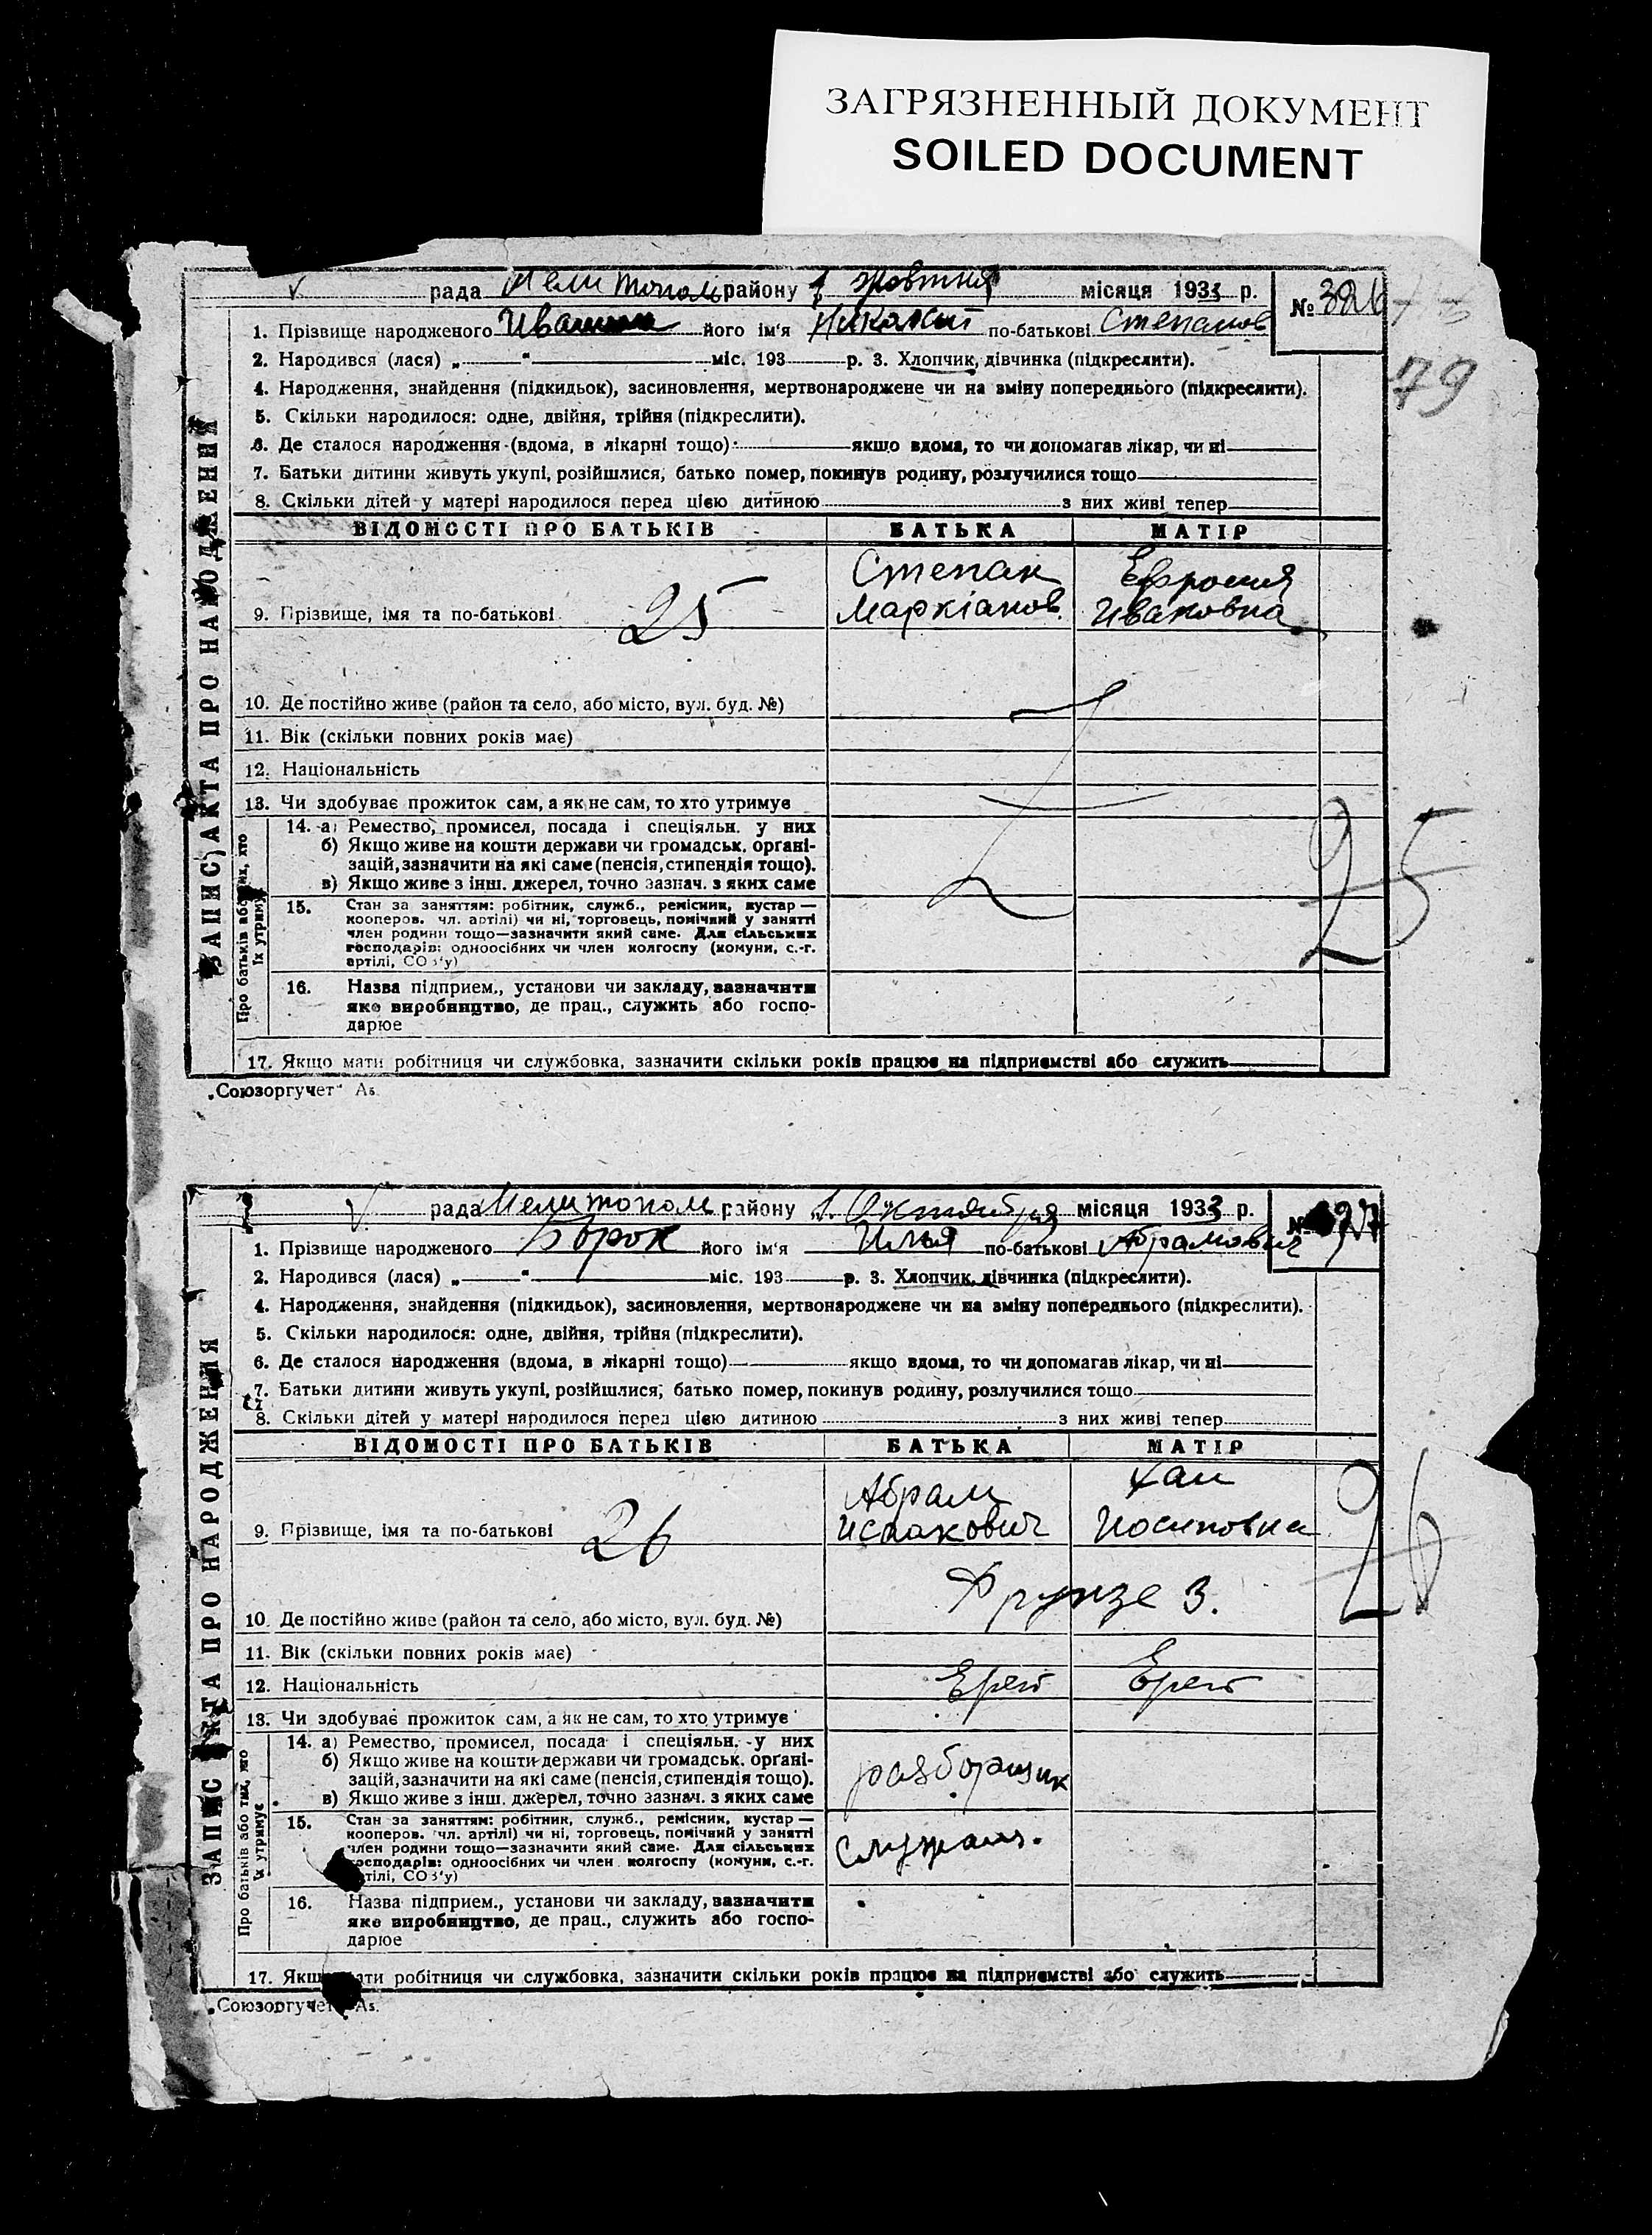 ЗАГРЯЗНЕННЫЙ ДОКУМЕНТ
SOILED DOCUMENT
рада Мелитополь району 1 жовтня місяця 1933 р.
№ 326
79
1. Прізвище народженого його ім'я Николай по-батькові Степанов
2. Народився (лася) „ “ міс. 193 р. 3. Хлопчик, дівчинка (підкреслити).
4. Народження, знайдення (підкидьок), засиновлення, мертвонароджене чи на зміну попереднього (підкреслити).
5. Скільки народилося: одне, двійня, трійня (підкреслити).
6. Де сталося народження (вдома, в лікарні тощо) якщо вдома, то чи допомагав лікар, чи ні
7. Батьки дитини живуть укупі, розійшлися, батько помер, покинув родину, розлучилися тощо
8. Скільки дітей у матері народилося перед цією дитиною з них живі тепер
ЗАПИС АКТА ПРО НАРОДЖЕННЯ
ВІДОМОСТІ ПРО БАТЬКІВ БАТЬКА МАТІР
Степан Ефросия
9. Прізвище, імя та по-батькові 25 Маркіанов. Ивановна
10. Де постійно живе (район та село, або місто, вул. буд. №)
11. Вік (скільки повних років має)
12. Національність
13. Чи здобуває прожиток сам, а як не сам, то хто утримує
Про батьків або тих, хто їх утримує
14. а) Ремество, промисел, посада і спеціяльн. у них
б) Якщо живе на кошти держави чи громадськ. органі-
зацій, зазначити на які саме (пенсія, стипендія тощо).
в) Якщо живе з інш. джерел, точно зазнач. з яких саме
25
15. Стан за заняттям: робітник, служб., ремісник, кустар —
кооперов. чл. артілі) чи ні, торговець, помічний у занятті
член родини тощо—зазначити який саме. Для сільських
господарів: одноосібних чи член колгоспу (комуни, с.-г.
артілі, СОЗ'у)
16. Назва підприєм., установи чи закладу, зазначити
яке виробництво, де прац., служить або госпо-
дарює
17. Якщо мати робітниця чи службовка, зазначити скільки років працює на підприємстві або служить
„Союзоргучет“ А5.
рада Мелитополь району 1. Октября місяця 1933 р.
1. Прізвище народженого Борок його ім'я Илья по-батькові Абрамович
2. Народився (лася) „ “ міс. 193 р. 3. Хлопчик, дівчинка (підкреслити).
4. Народження, знайдення (підкидьок), засиновлення, мертвонароджене чи на зміну попереднього (підкреслити).
5. Скільки народилося: одне, двійня, трійня (підкреслити).
6. Де сталося народження (вдома, в лікарні тощо) якщо вдома, то чи допомагав лікар, чи ні
7. Батьки дитини живуть укупі, розійшлися, батько помер, покинув родину, розлучилися тощо
8. Скільки дітей у матері народилося перед цією дитиною з них живі тепер
ЗАПИС АКТА ПРО НАРОДЖЕННЯ
ВІДОМОСТІ ПРО БАТЬКІВ БАТЬКА МАТІР
Абрам Хаи
9. Прізвище, імя та по-батькові 26 Исаакович Иосиповна
26
Фрунзе 3.
10. Де постійно живе (район та село, або місто, вул. буд. №)
11. Вік (скільки повних років має)
12. Національність Еврей Еврей
13. Чи здобуває прожиток сам, а як не сам, то хто утримує
Про батьків або тих, хто їх утримує
14. а) Ремество, промисел, посада і спеціяльн. у них
б) Якщо живе на кошти держави чи громадськ. органі-
зацій, зазначити на які саме (пенсія, стипендія тощо).
в) Якщо живе з інш. джерел, точно зазнач. з яких саме
разборщик
15. Стан за заняттям: робітник, служб., ремісник, кустар —
кооперов. чл. артілі) чи ні, торговець, помічний у занятті
член родини тощо—зазначити який саме. Для сільських
господарів: одноосібних чи член колгоспу (комуни, с.-г.
артілі, СОЗ'у)
служащ.
16. Назва підприєм., установи чи закладу, зазначити
яке виробництво, де прац., служить або госпо-
дарює
17. Якщо мати робітниця чи службовка, зазначити скільки років працює на підприємстві або служить
„Союзоргучет“ А5.